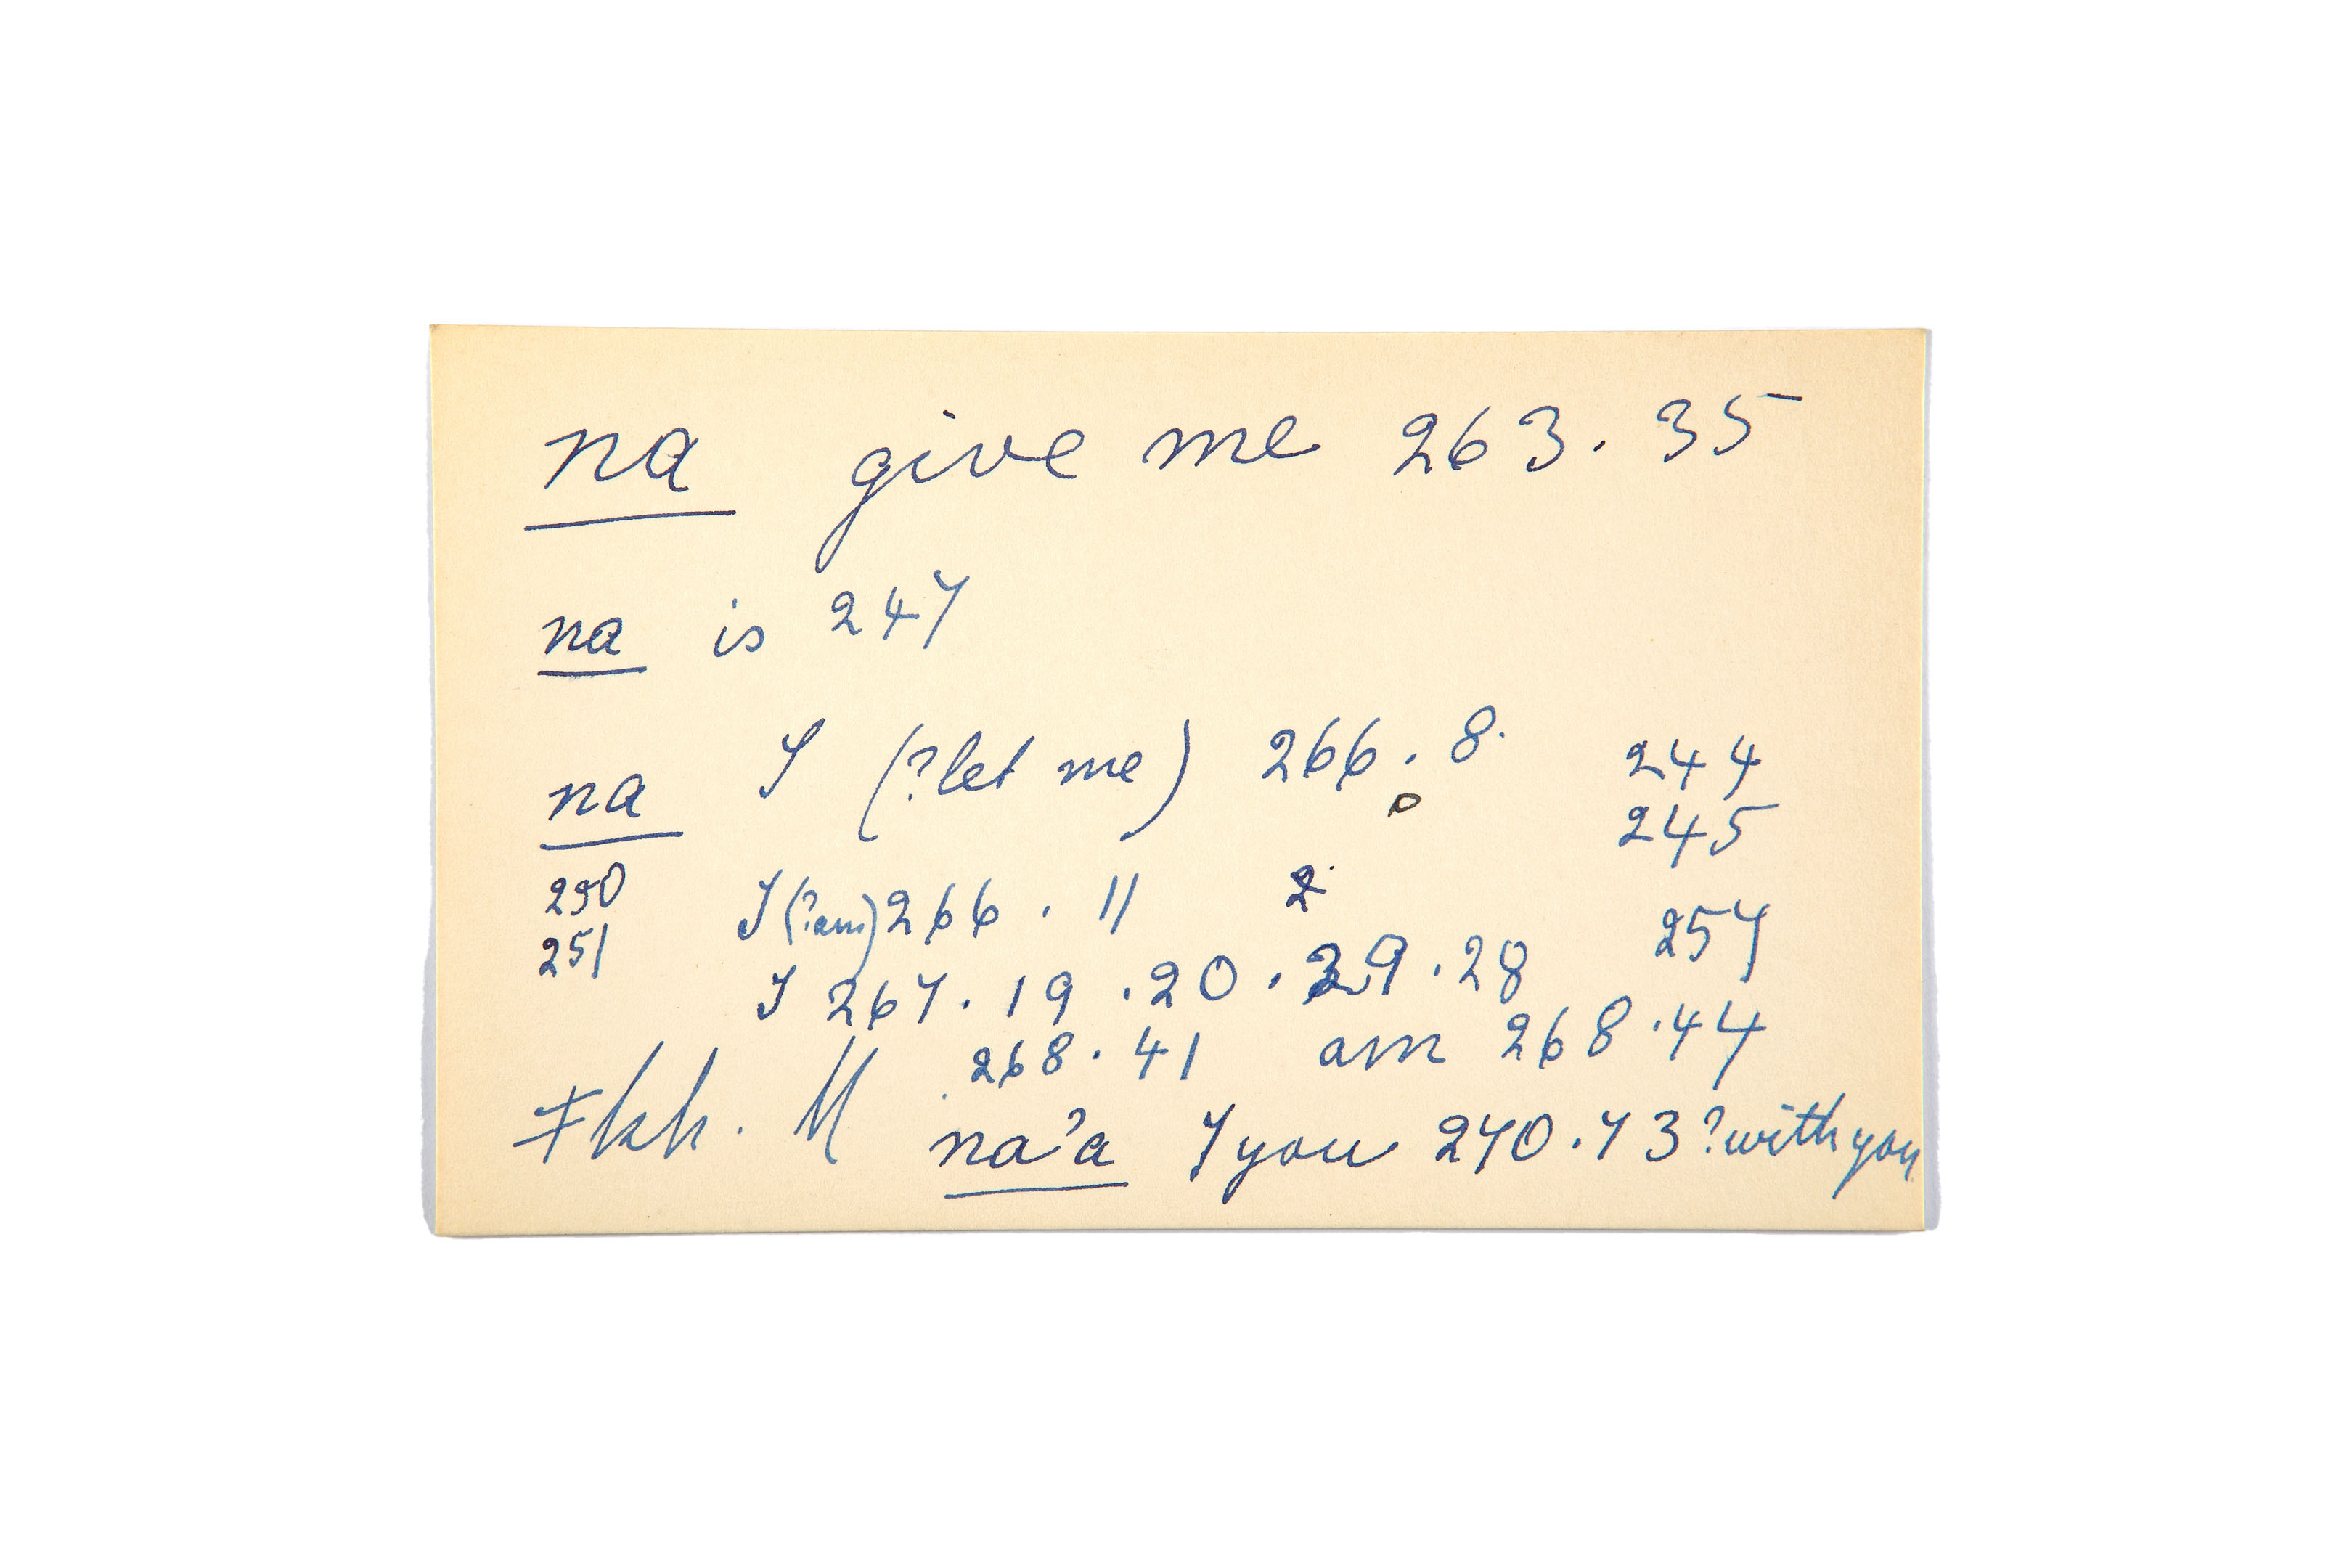 na give me 263. 35
na is 247
na I (?let me) 266. 8. 244
245
250 I (?am) 266. 11 2 257
251 I 267. 19 .20 .29 .28
268. 41 am 268 .44
ǂkh. M na'a I you 270.73 ?with you